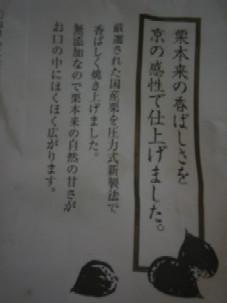 栗本来の香ばしさを
京の感性で仕上げました。
厳選された国産栗を圧力式新製法で
香ばしく焼き上げました。
無添加なので栗本来の自然の甘さが
お口の中にほくほく広がります。